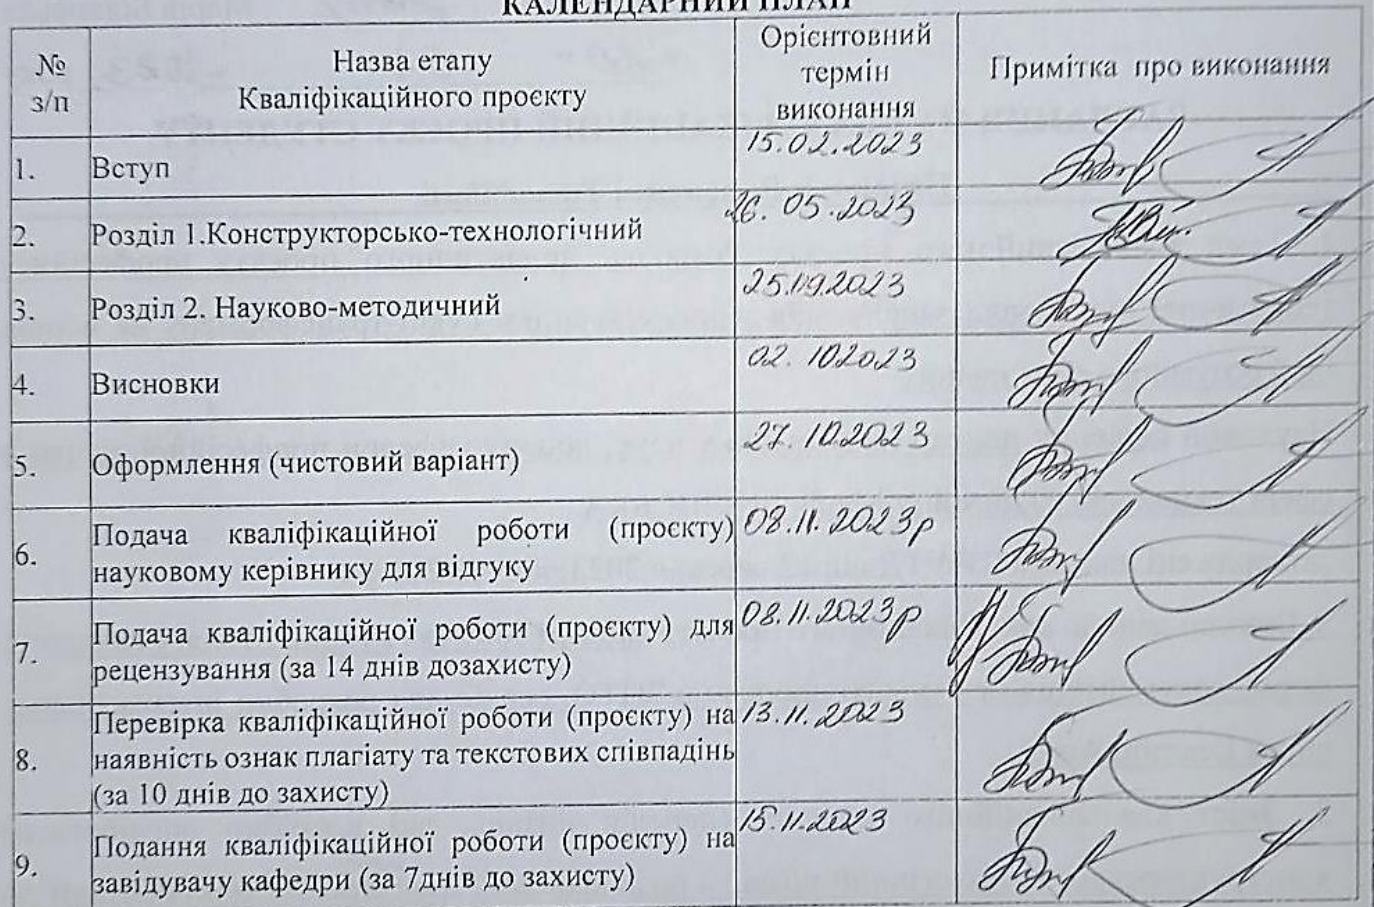 КАЛЕНДАРНИЙ ПЛАН
№
з/п
Назва етапу
Кваліфікаційного проєкту
Орієнтовний
термін
виконання
Примітка про виконання
1.
Вступ
15.02.2023
2.
Розділ 1.Конструкторсько-технологічний
26.05.2023
3.
Розділ 2. Науково-методичний
25.09.2023
4.
Висновки
02.10.2023
5.
Оформлення (чистовий варіант)
27.10.2023
6.
Подача кваліфікаційної роботи (проєкту)
науковому керівнику для відгуку
08.11.2023р
7.
Подача кваліфікаційної роботи (проєкту) для
рецензування (за 14 днів дозахисту)
08.11.2023р
8.
Перевірка кваліфікаційної роботи (проєкту) на
наявність ознак плагіату та текстових співпадінь
(за 10 днів до захисту)
13.11.2023
9.
Подання кваліфікаційної роботи (проєкту) на
завідувачу кафедри (за 7днів до захисту)
15.11.2023